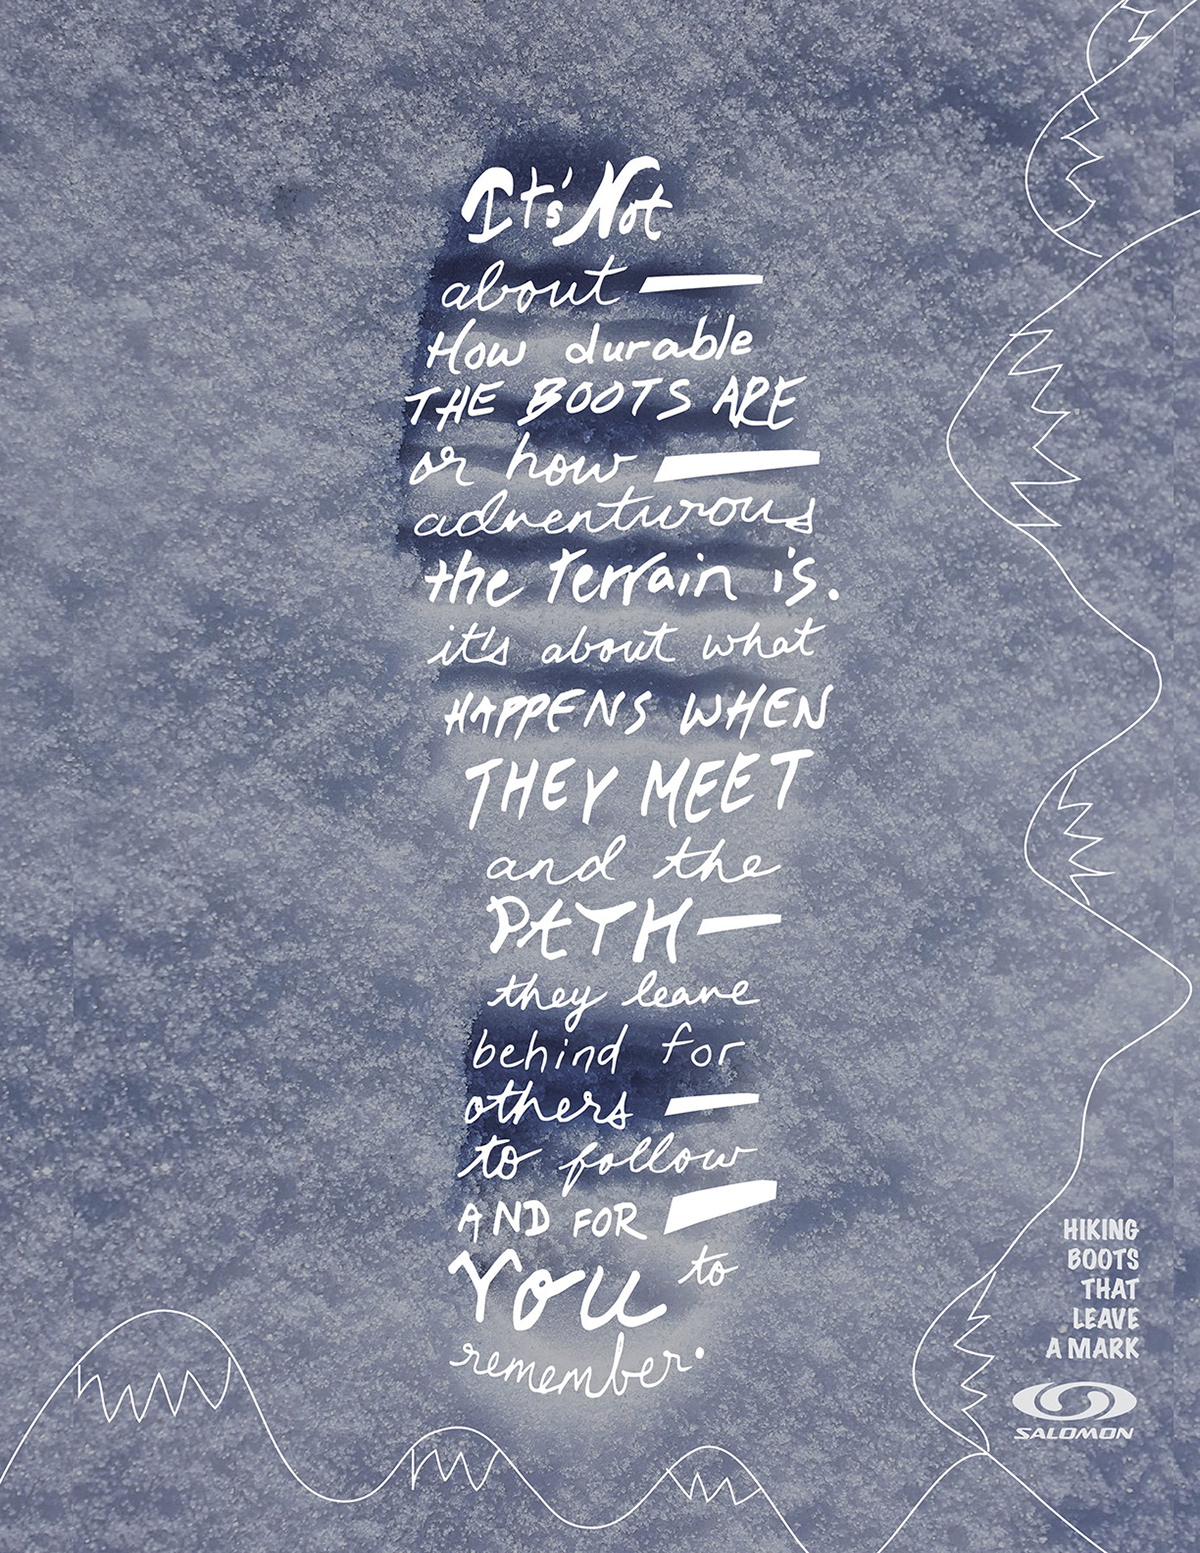 It's Not
about
How durable
THE BOOTS ARE
or how
adventurous
the terrain is.
it's about what
HAPPENS WHEN
THEY MEET
and the
PATH
they leave
behind for
others
to follow
AND FOR
You to
remember.
HIKING
BOOTS
THAT
LEAVE
A MARK
SALOMON